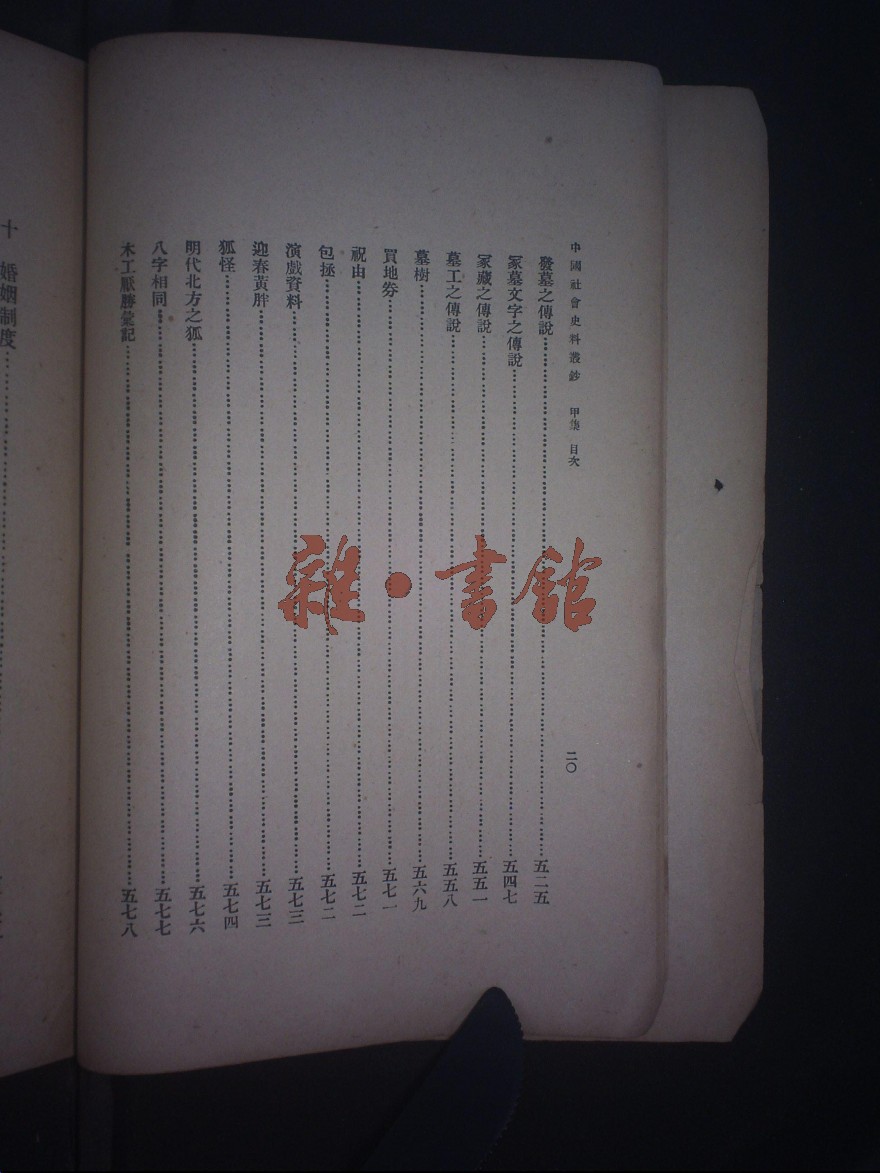 中國社會史料叢鈔 甲集 目次 二〇
發墓之傳說……五二五
冢墓文字之傳說……五四七
冢藏之傳說……五五一
墓工之傳說……五五八
墓樹……五六九
買地券……五七一
祝由……五七二
包拯……五七二
演戲資料……五七三
迎春黃胖……五七三
狐怪……五七四
明代北方之狐……五七六
八字相同……五七七
木工厭勝彙記……五七八
十 婚姻制度……
雜·書館